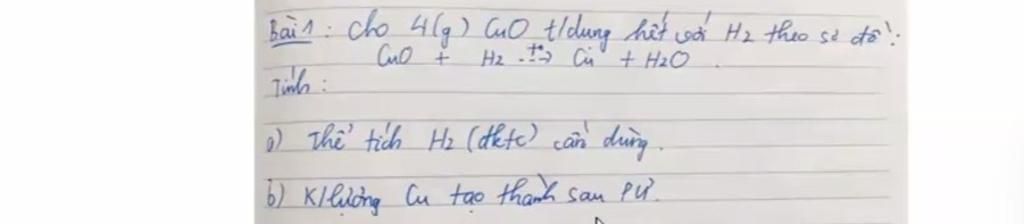 Bài 1: Cho 4(g) CuO t/dụng hết với H2 theo sơ đồ:
CuO + H2 --t°-> Cu + H2O.
Tính:
a) Thể tích H2 (đktc) cần dùng.
b) K/lượng Cu tạo thành sau PƯ.